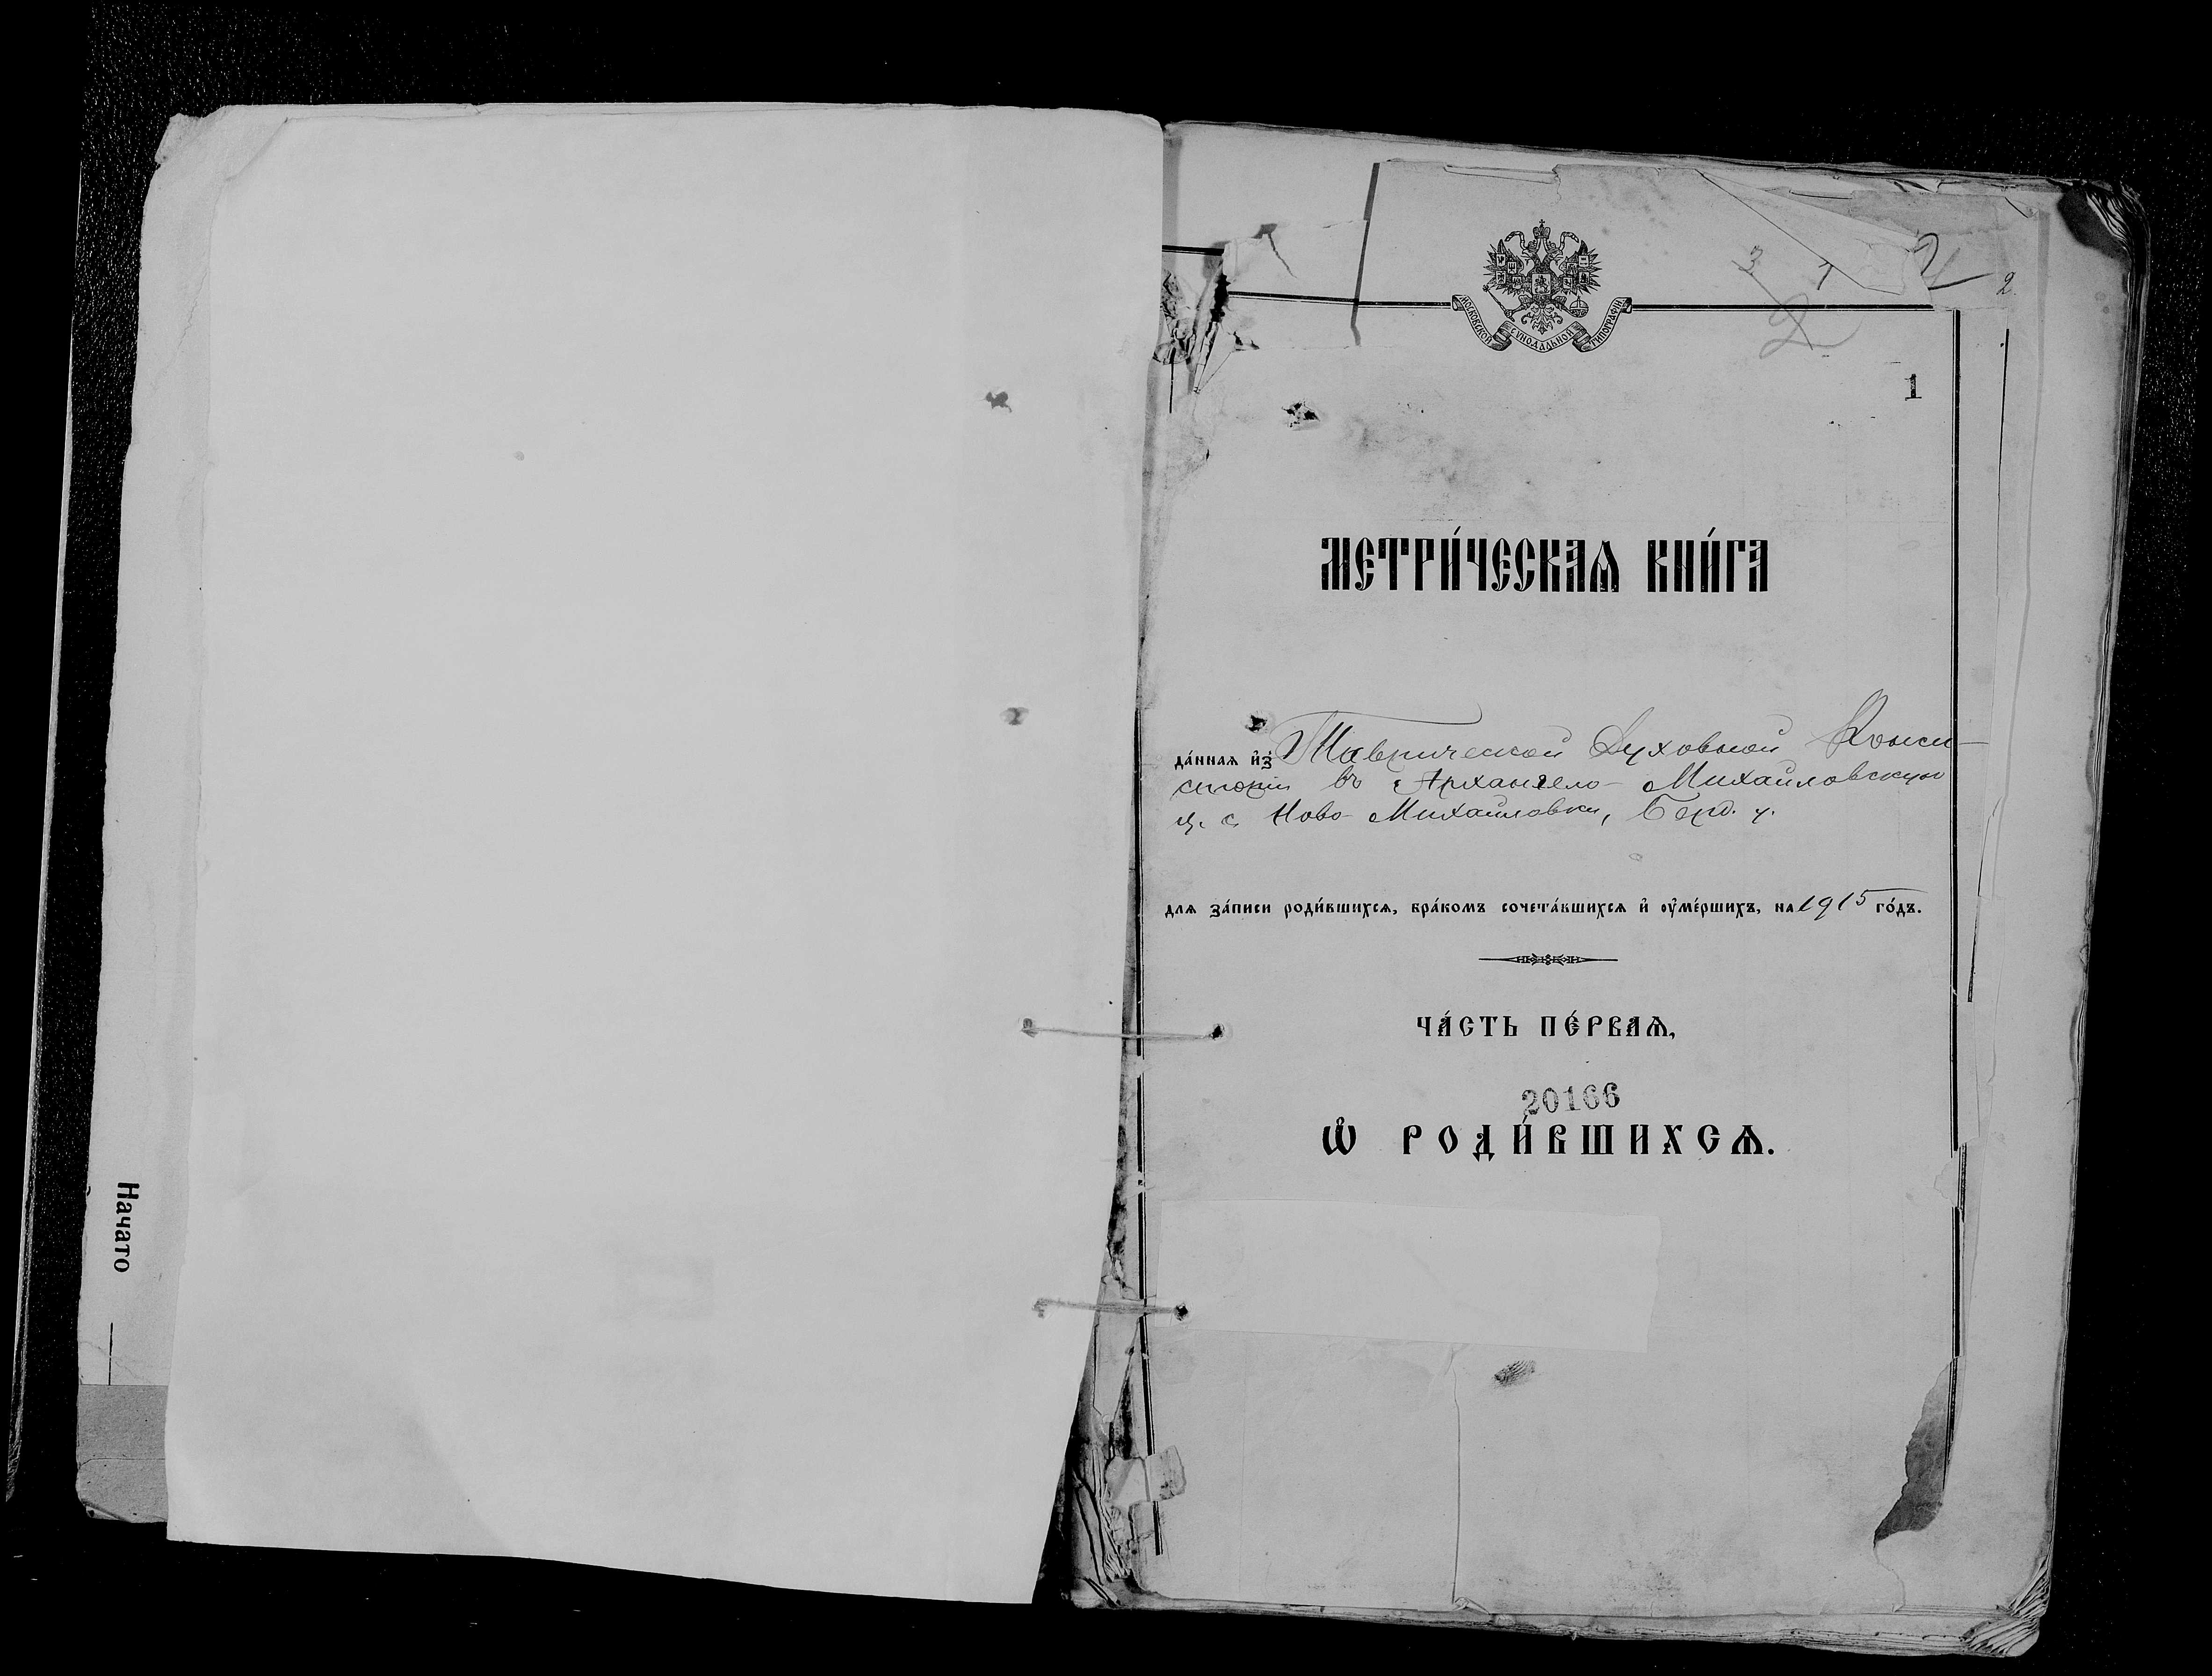 3 1 2 2
2
МОСКОВСКОЙ СѴНОДАЛЬНОЙ ТИПОГРАФІИ
1
МЕТРИ́ЧЕСКАѦ КНИ́ГА
да́ннаѧ и҆з̾ Таврической Духовной Конси-
сторіи въ Архангело-Михайловскую
ц. с. Ново-Михайловки, Берд. у.
для за́писи роди́вшихсѧ, бра́комъ сочета́вшихсѧ и҆ ᲂу҆ме́ршихъ, на 1915 го́дъ.
ЧА́СТЬ ПЕ́РВАѦ,
20166
Ѽ РОДИ́ВШИХСѦ.
Начато